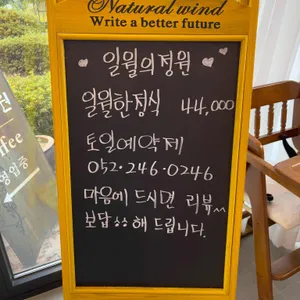 Natural wind
Write a better future
일월의정원
일월한정식 44,000
토일예약제
052·246·0246
마음에 드시면 리뷰^^
보답‥해 드립니다.
원
ffee